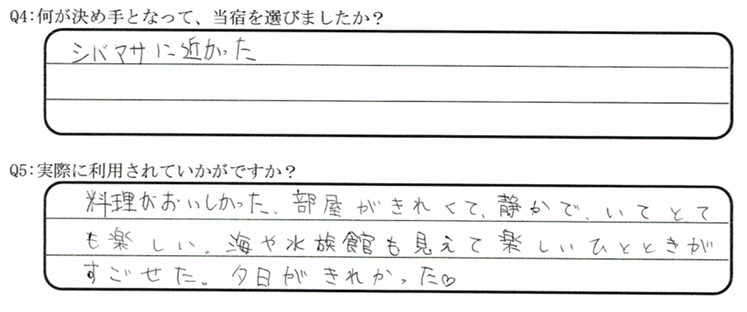 Q4:何が決め手となって、当宿を選びましたか?
シバマサに近かった
Q5:実際に利用されていかがですか?
料理がおいしかった、部屋がきれくて、静かで、いてとて
も楽しい。海や水族館も見えて楽しいひとときが
すごせた。夕日がきれかった♡